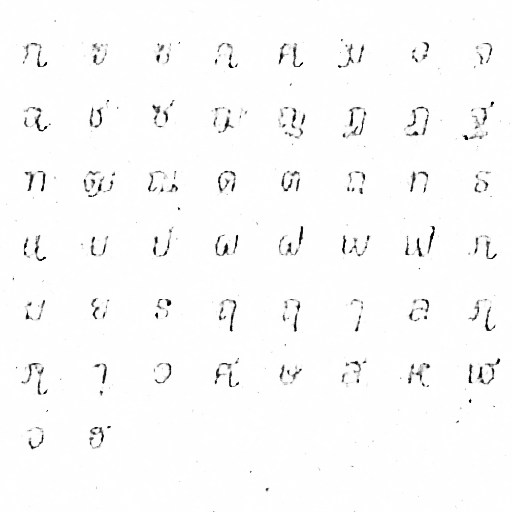 ก ข ฃ ค ฅ ฆ ง จ
ฉ ช ซ ฌ ญ ฎ ฏ ฐ
ฑ ฒ ณ ด ต ถ ท ธ
น บ ป ผ ฝ พ ฟ ภ
ม ย ร ฤ ล ฦ
ว ศ ษ ส ห ฬ
อ ฮ